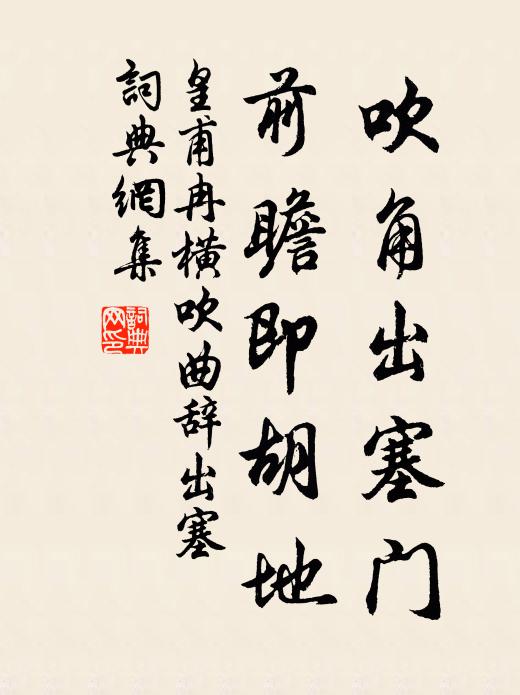 吹角出塞门
前瞻即胡地
皇甫冉横吹曲辞出塞
詞典網集
詞典网印